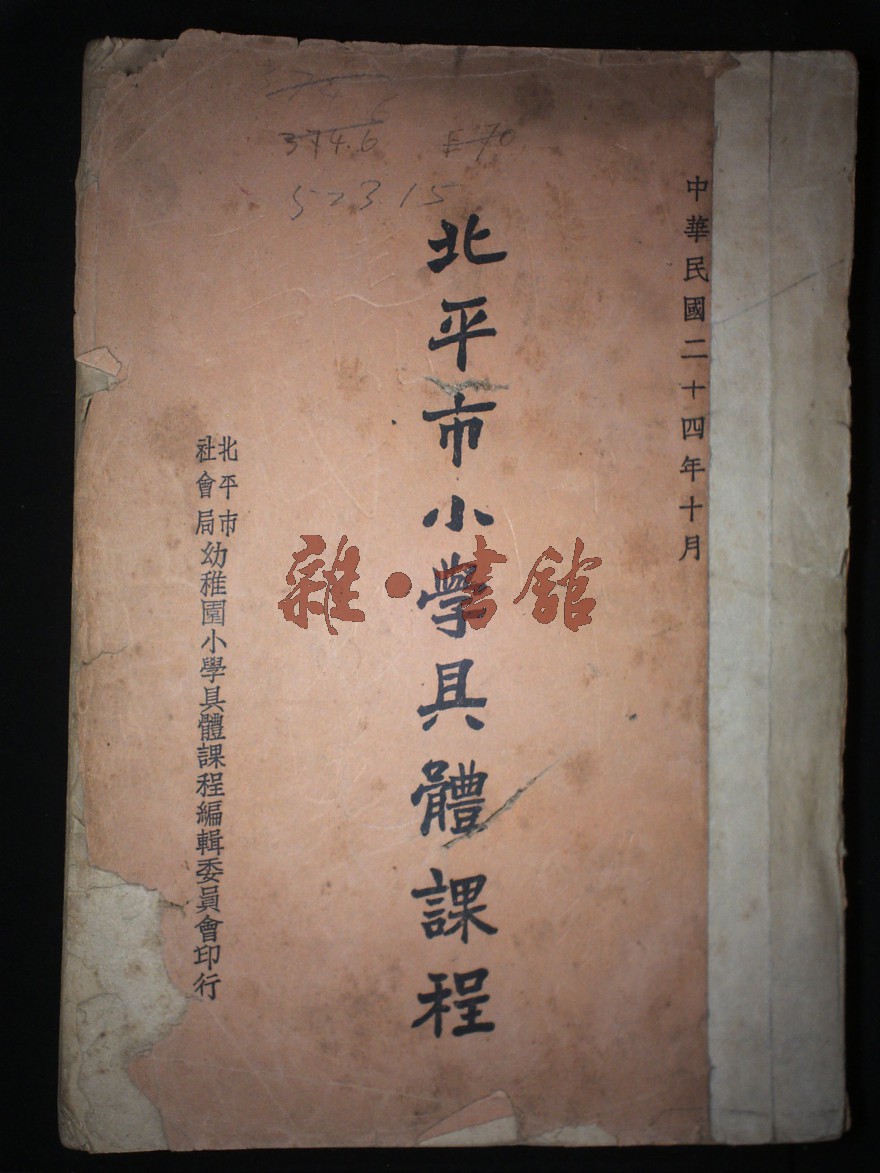 中華民國二十四年十月
北平市小學具體課程
北平市
社會局
幼稚園小學具體課程編輯委員會印行
374.6
52315
雜·書館